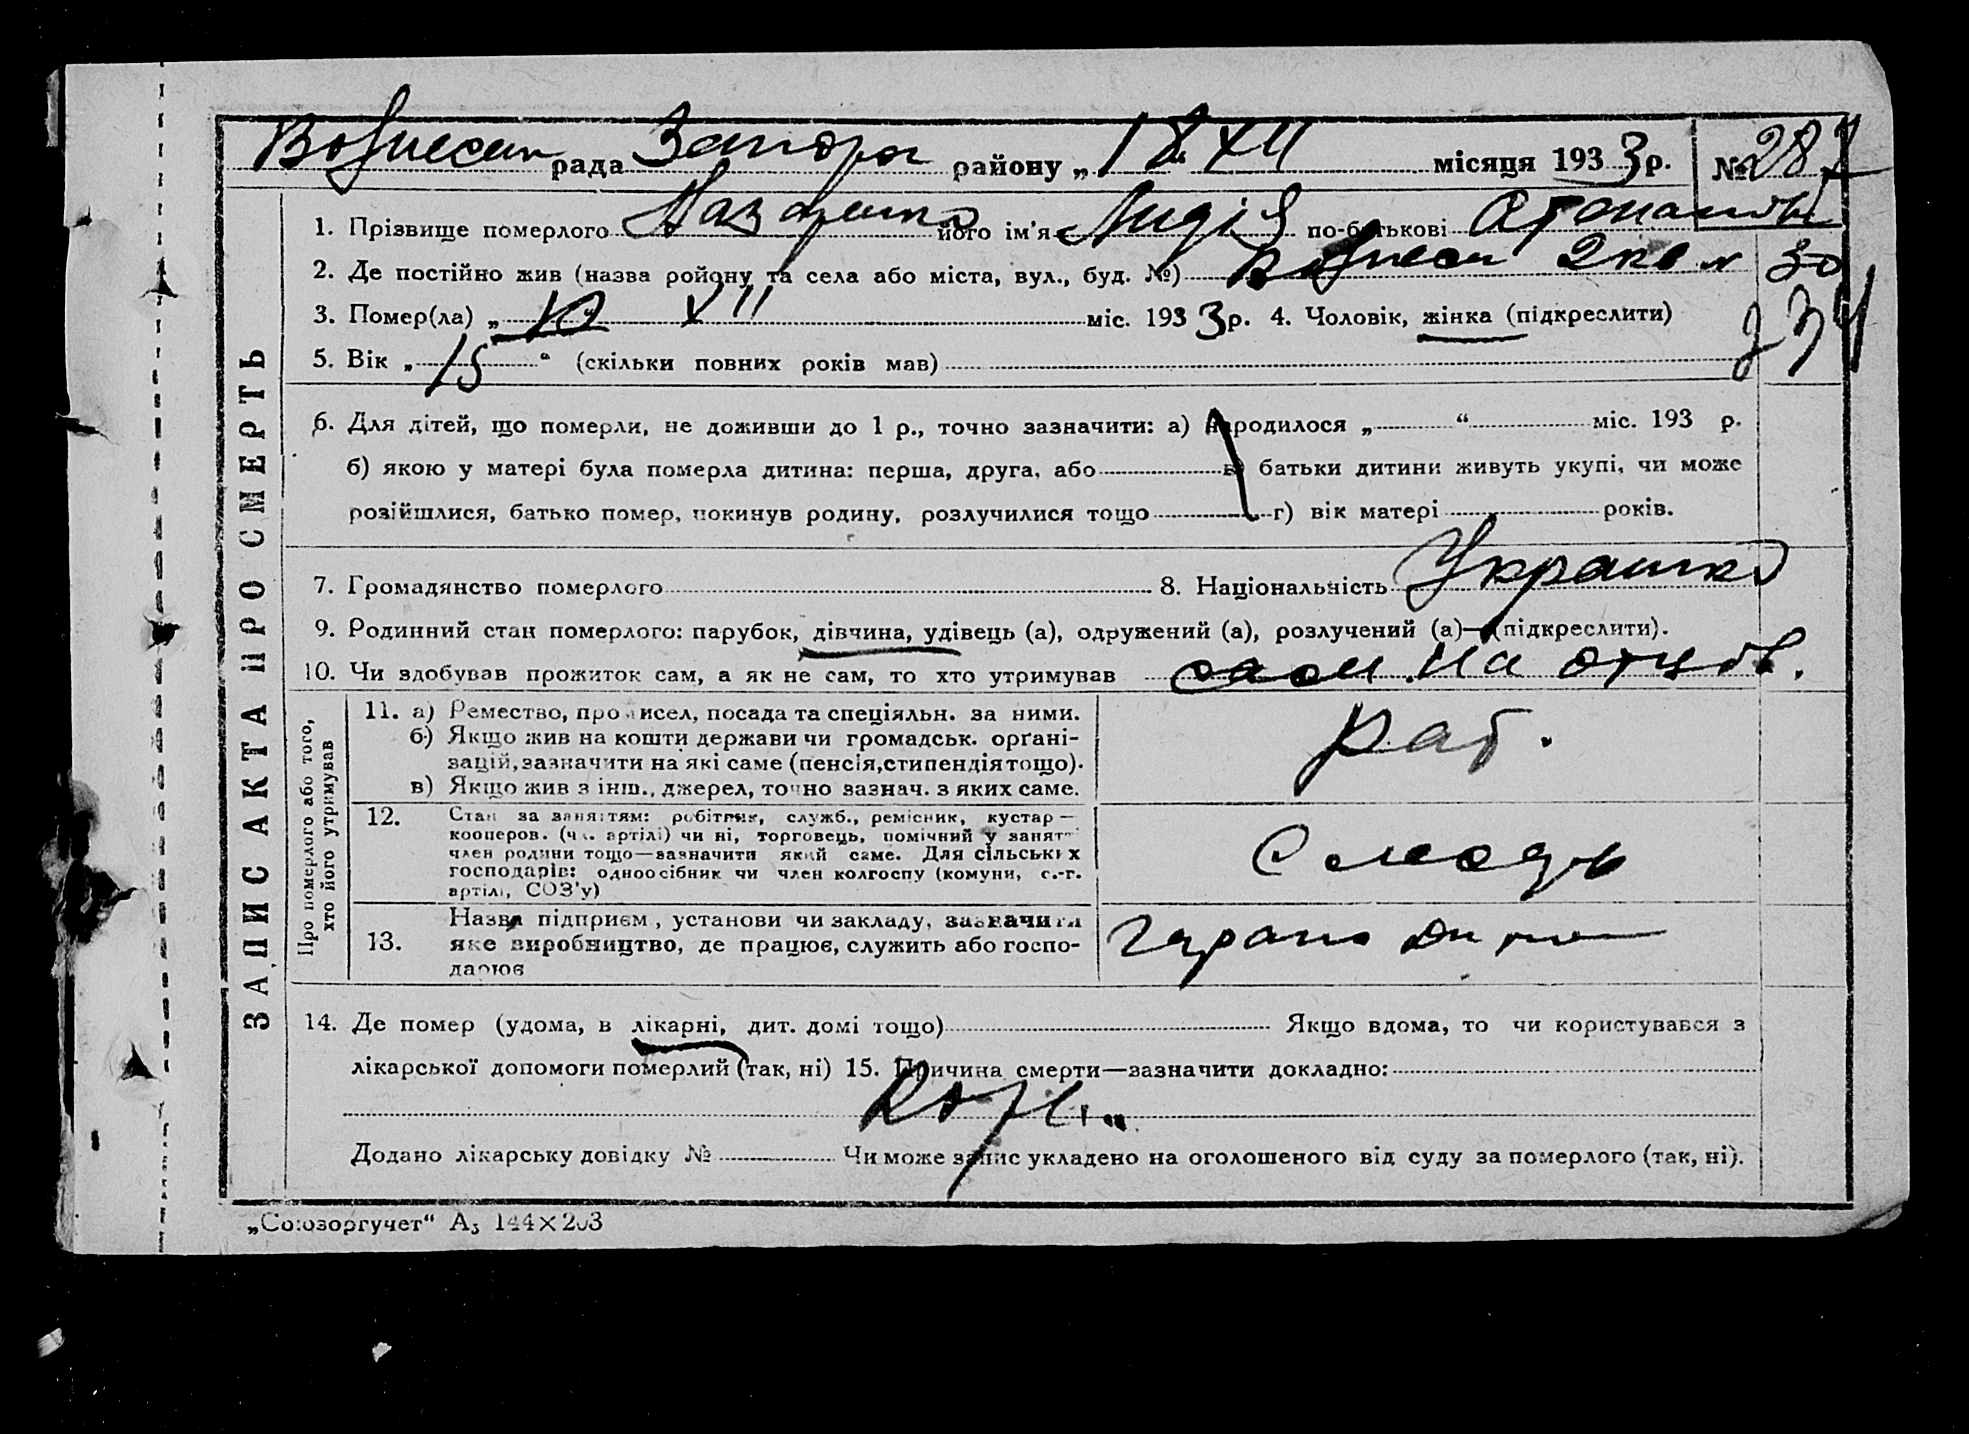 Вознесен рада Запорож району „ 18 XII місяця 193 3 р. № 287
1. Прізвище померлого його ім'я Лидія по-батькові
2. Де постійно жив (назва ройону та села або міста, вул., буд. №) Вознесен 2 кв N 30
3. Помер(ла) „ XII міс. 193 3 р. 4. Чоловік, жінка (підкреслити)
5. Вік „ 15 “ (скільки повних років мав)
6. Для дітей, що померли, не доживши до 1 р., точно зазначити: а) народилося „ “ міс. 193 р.
б) якою у матері була померла дитина: перша, друга, або в) батьки дитини живуть укупі, чи може
розійшлися, батько помер, покинув родину, розлучилися тощо г) вік матері років.
7. Громадянство померлого 8. Національність Украинка
9. Родинний стан померлого: парубок, дівчина, удівець (а), одружений (а), розлучений (а)—(підкреслити).
10. Чи здобував прожиток сам, а як не сам, то хто утримував
ЗАПИС АКТА ПРО СМЕРТЬ
Про померлого або того, хто його утримував
11. а) Ремество, промисел, посада та спеціяльн. за ними.
б) Якщо жив на кошти держави чи громадськ. орґані-
зацій, зазначити на які саме (пенсія, стипендія тощо).
в) Якщо жив з інш., джерел, точно зазнач. з яких саме.
раб.
12. Стан за заняттям: робітник, служб., ремісник, кустар —
кооперов. (чл. артілі) чи ні, торговець, помічний у занятт
член родини тощо—зазначити який саме. Для сільських
господарів: одноосібник чи член колгоспу (комуни, с.-г.
артілі, СОЗ'у)
13. Назва підприєм, установи чи закладу, зазначити
яке виробництво, де працює, служить або госпо-
дарює
14. Де помер (удома, в лікарні, дит. домі тощо) Якщо вдома, то чи користувався з
лікарської допомоги померлий (так, ні) 15. Причина смерти—зазначити докладно:
Додано лікарську довідку № Чи може запис укладено на оголошеного від суду за померлого (так, ні).
„Союзоргучет“ А₅ 144×203